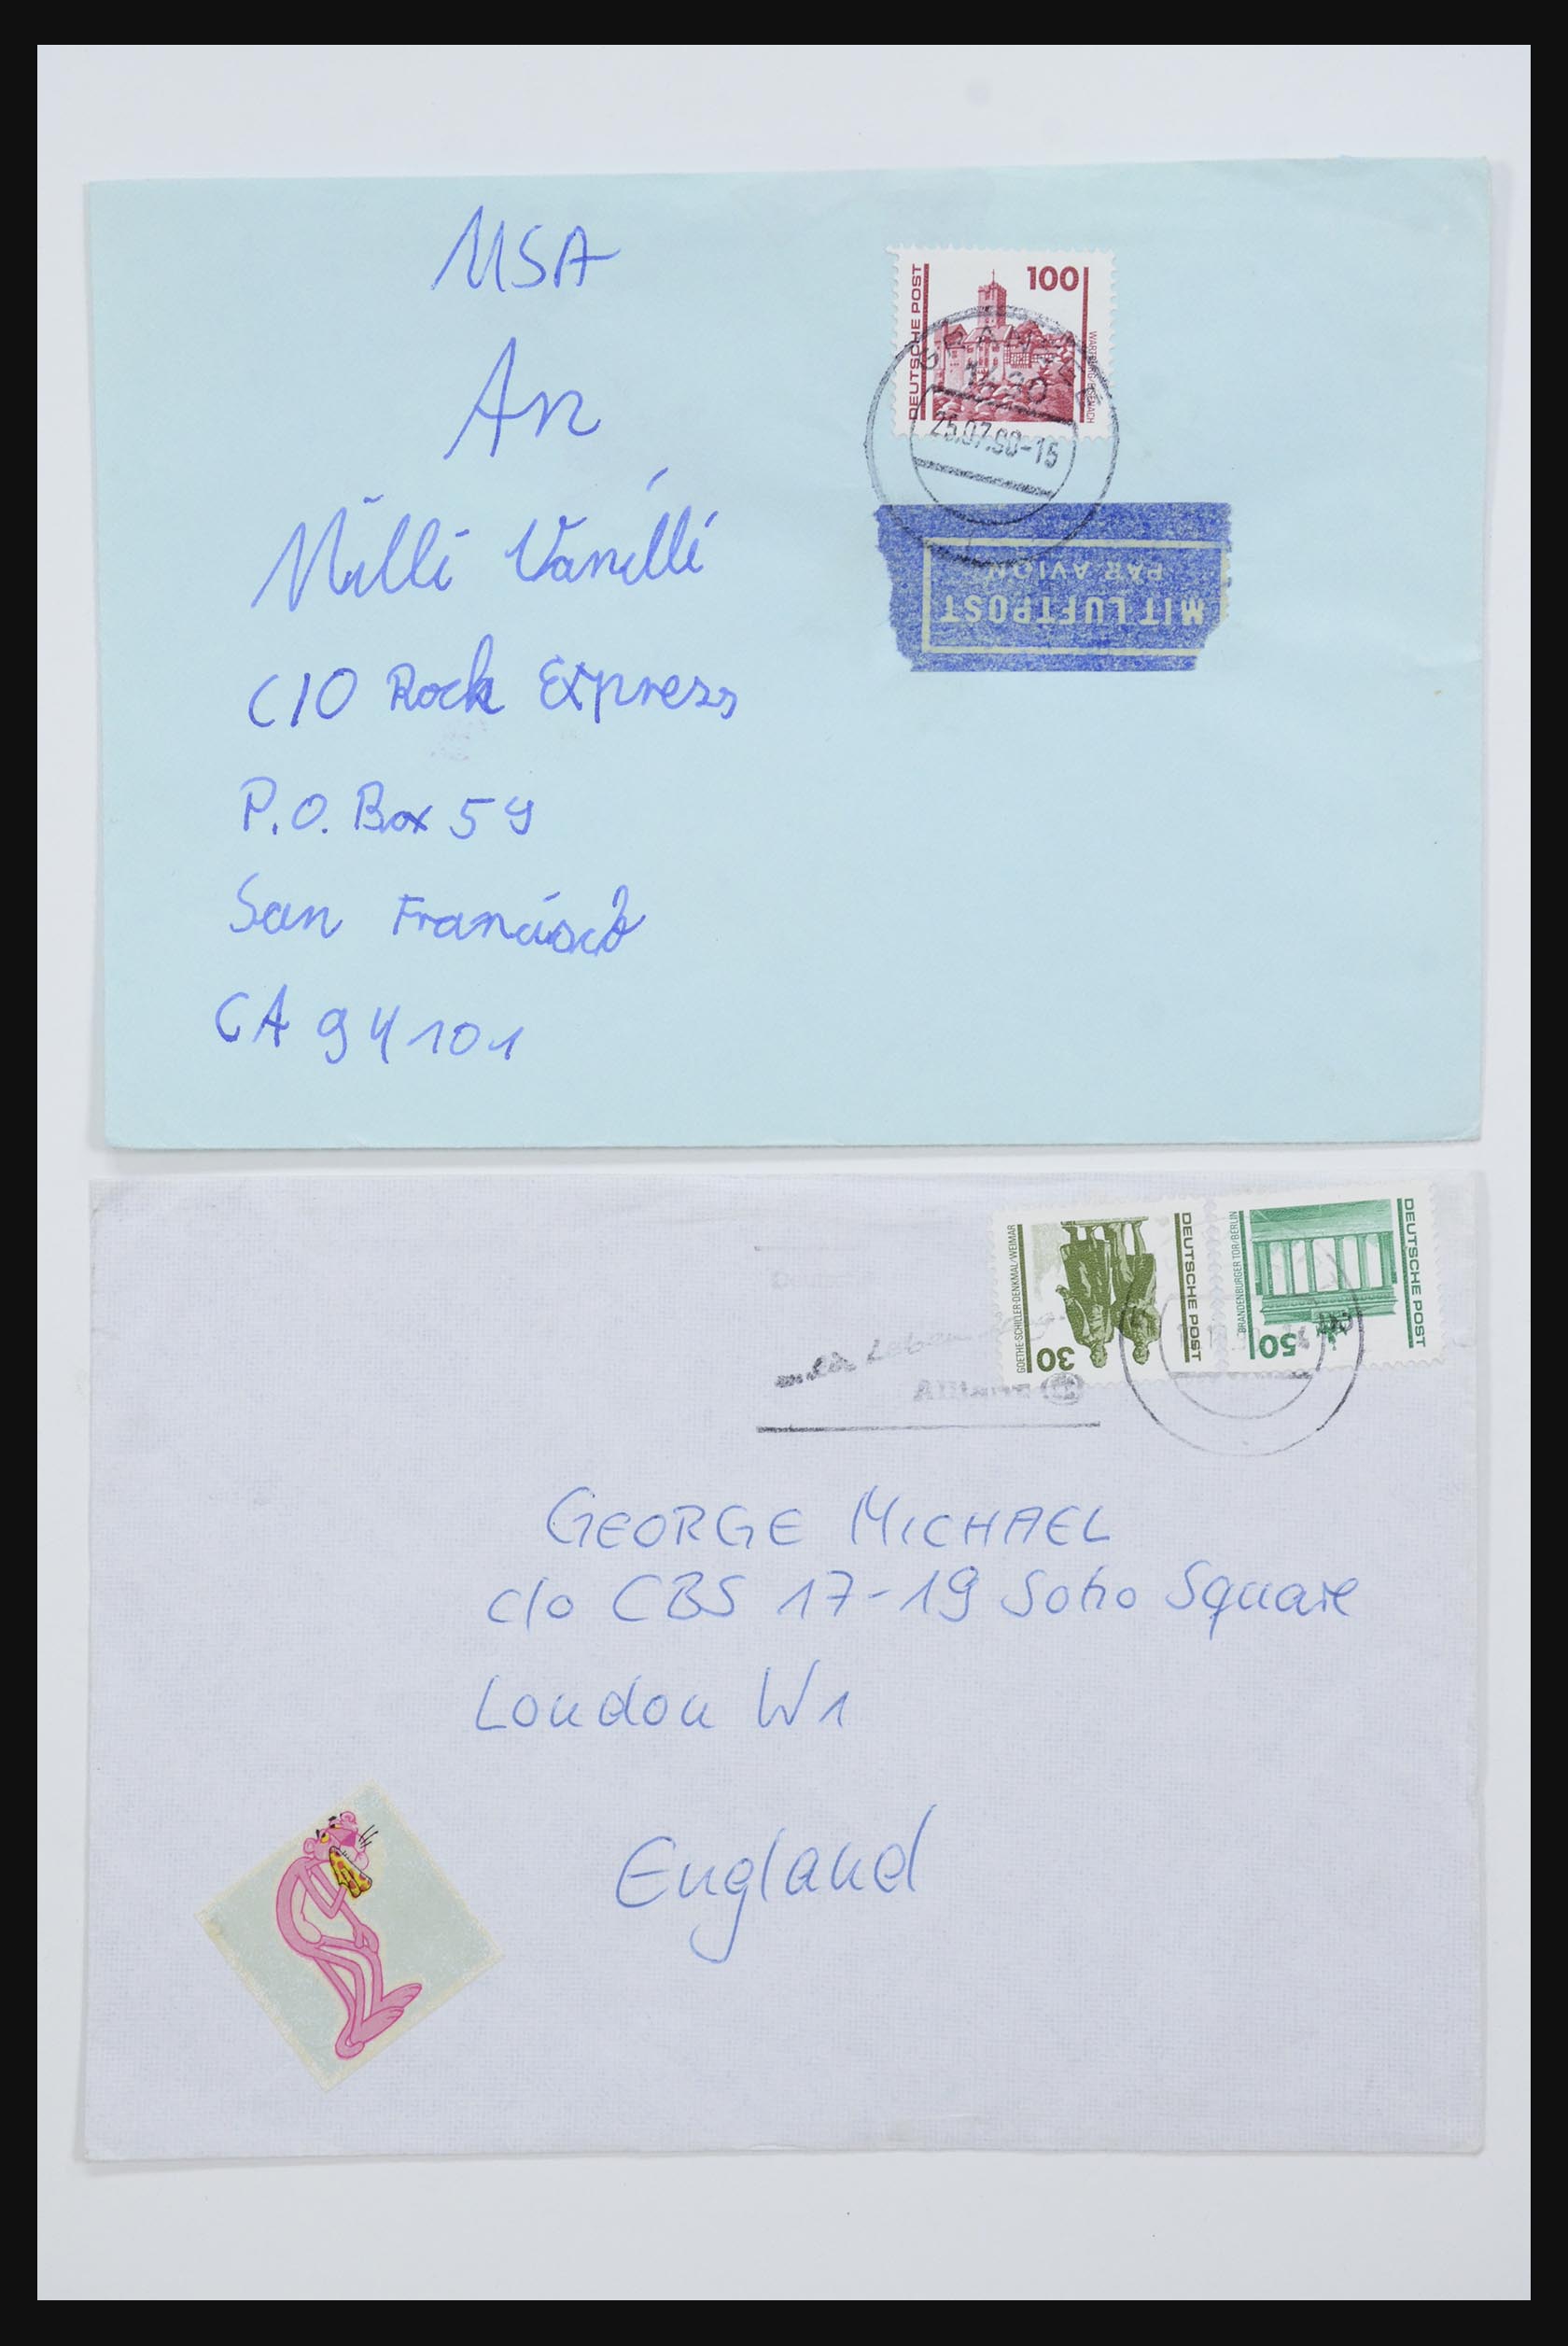 USA
An
Milli Vanilli
C/O Rock Express
P.O. Box 59
San Francisco
CA 94101
DEUTSCHE POST
100
WARTBURG/EISENACH
1430
25.07.90-15
MIT LUFTPOST
PAR AVION
GOETHE-SCHILLER-DENKMAL/WEIMAR
30
DEUTSCHE POST
BRANDENBURGER TOR/BERLIN
50
DEUTSCHE POST
Allianz
GEORGE MICHAEL
c/o CBS 17-19 Soho Square
London W1
England